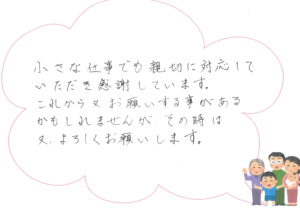 小さな仕事でも親切に対応して
いただき感謝しています。
これから又お願いする事がある
かもしれませんが、その時は
又、よろしくお願いします。